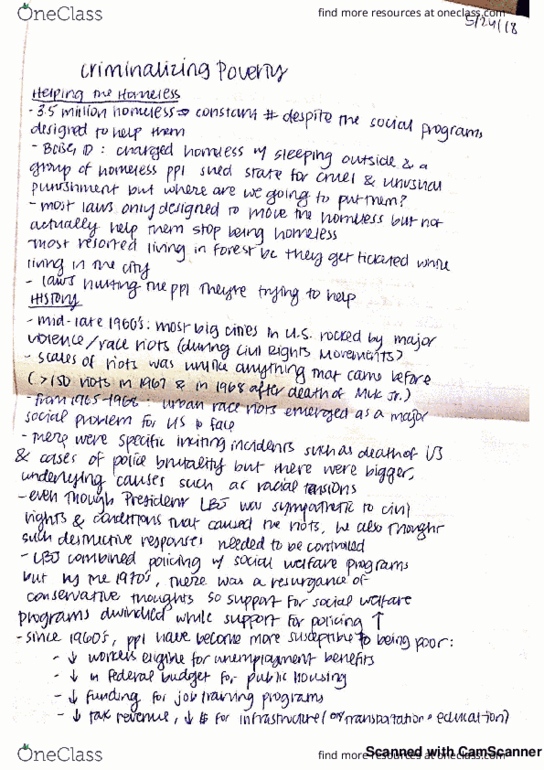 OneClass
find more resources at oneclass.com
5/24/18
Criminalizing Poverty
Helping the Homeless
- 3.5 million homeless → constant # despite the social programs
designed to help them
- Boise, ID : charged homeless w/ sleeping outside & a
group of homeless ppl sued state for cruel & unusual
punishment but where are we going to put them?
- most laws only designed to move the homeless but not
actually help them stop being homeless
most resorted living in forest bc they get ticketed while
living in the city
- laws hurting the ppl they're trying to help
HISTORY
- mid-late 1960's: most big cities in U.S. rocked by major
violence/race riots (during Civil Rights Movements)
- scales of riots was unlike anything that came before
( >150 riots in 1967 & in 1968 after death of MLK Jr.)
- from 1965-1968 : urban race riots emerged as a major
social problem for US to face
- there were specific inciting incidents such as death of
& cases of police brutality but there were bigger,
underlying causes such as racial tensions
- even though President LBJ was sympathetic to civil
rights & conditions that caused the riots, he also thought
such destructive responses needed to be controlled
- LBJ combined policing w/ social welfare programs
but by the 1970's, there was a resurgance of
conservative thoughts so support for social welfare
programs dwindled while support for policing ↑
- since 1960's, ppl have become more susceptible to being poor:
- ↓ workers eligible for unemployment benefits
- ↓ in federal budget for public housing
- ↓ funding for job training programs
- ↓ tax revenue, ↓ $ for infrastructure ( transportation + education)
OneClass
find more resources at oneclass.com
Scanned with CamScanner